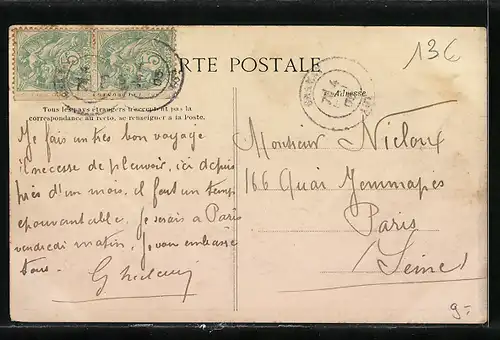 13€
CARTE POSTALE
Tous les pays étrangers n'acceptent pas la
correspondance au recto, se renseigner à la Poste.
Adresse
Je fais un très bon voyage
il necesse de pleuvoir, ici depuis
près d'un mois, il fait un temps
epouvantable. Je serais a Paris
vendredi matin. Je vous embrasse
tous.
Monsieur Nicloux
166 Quai Jemmapes
Paris
(Seine)
9-